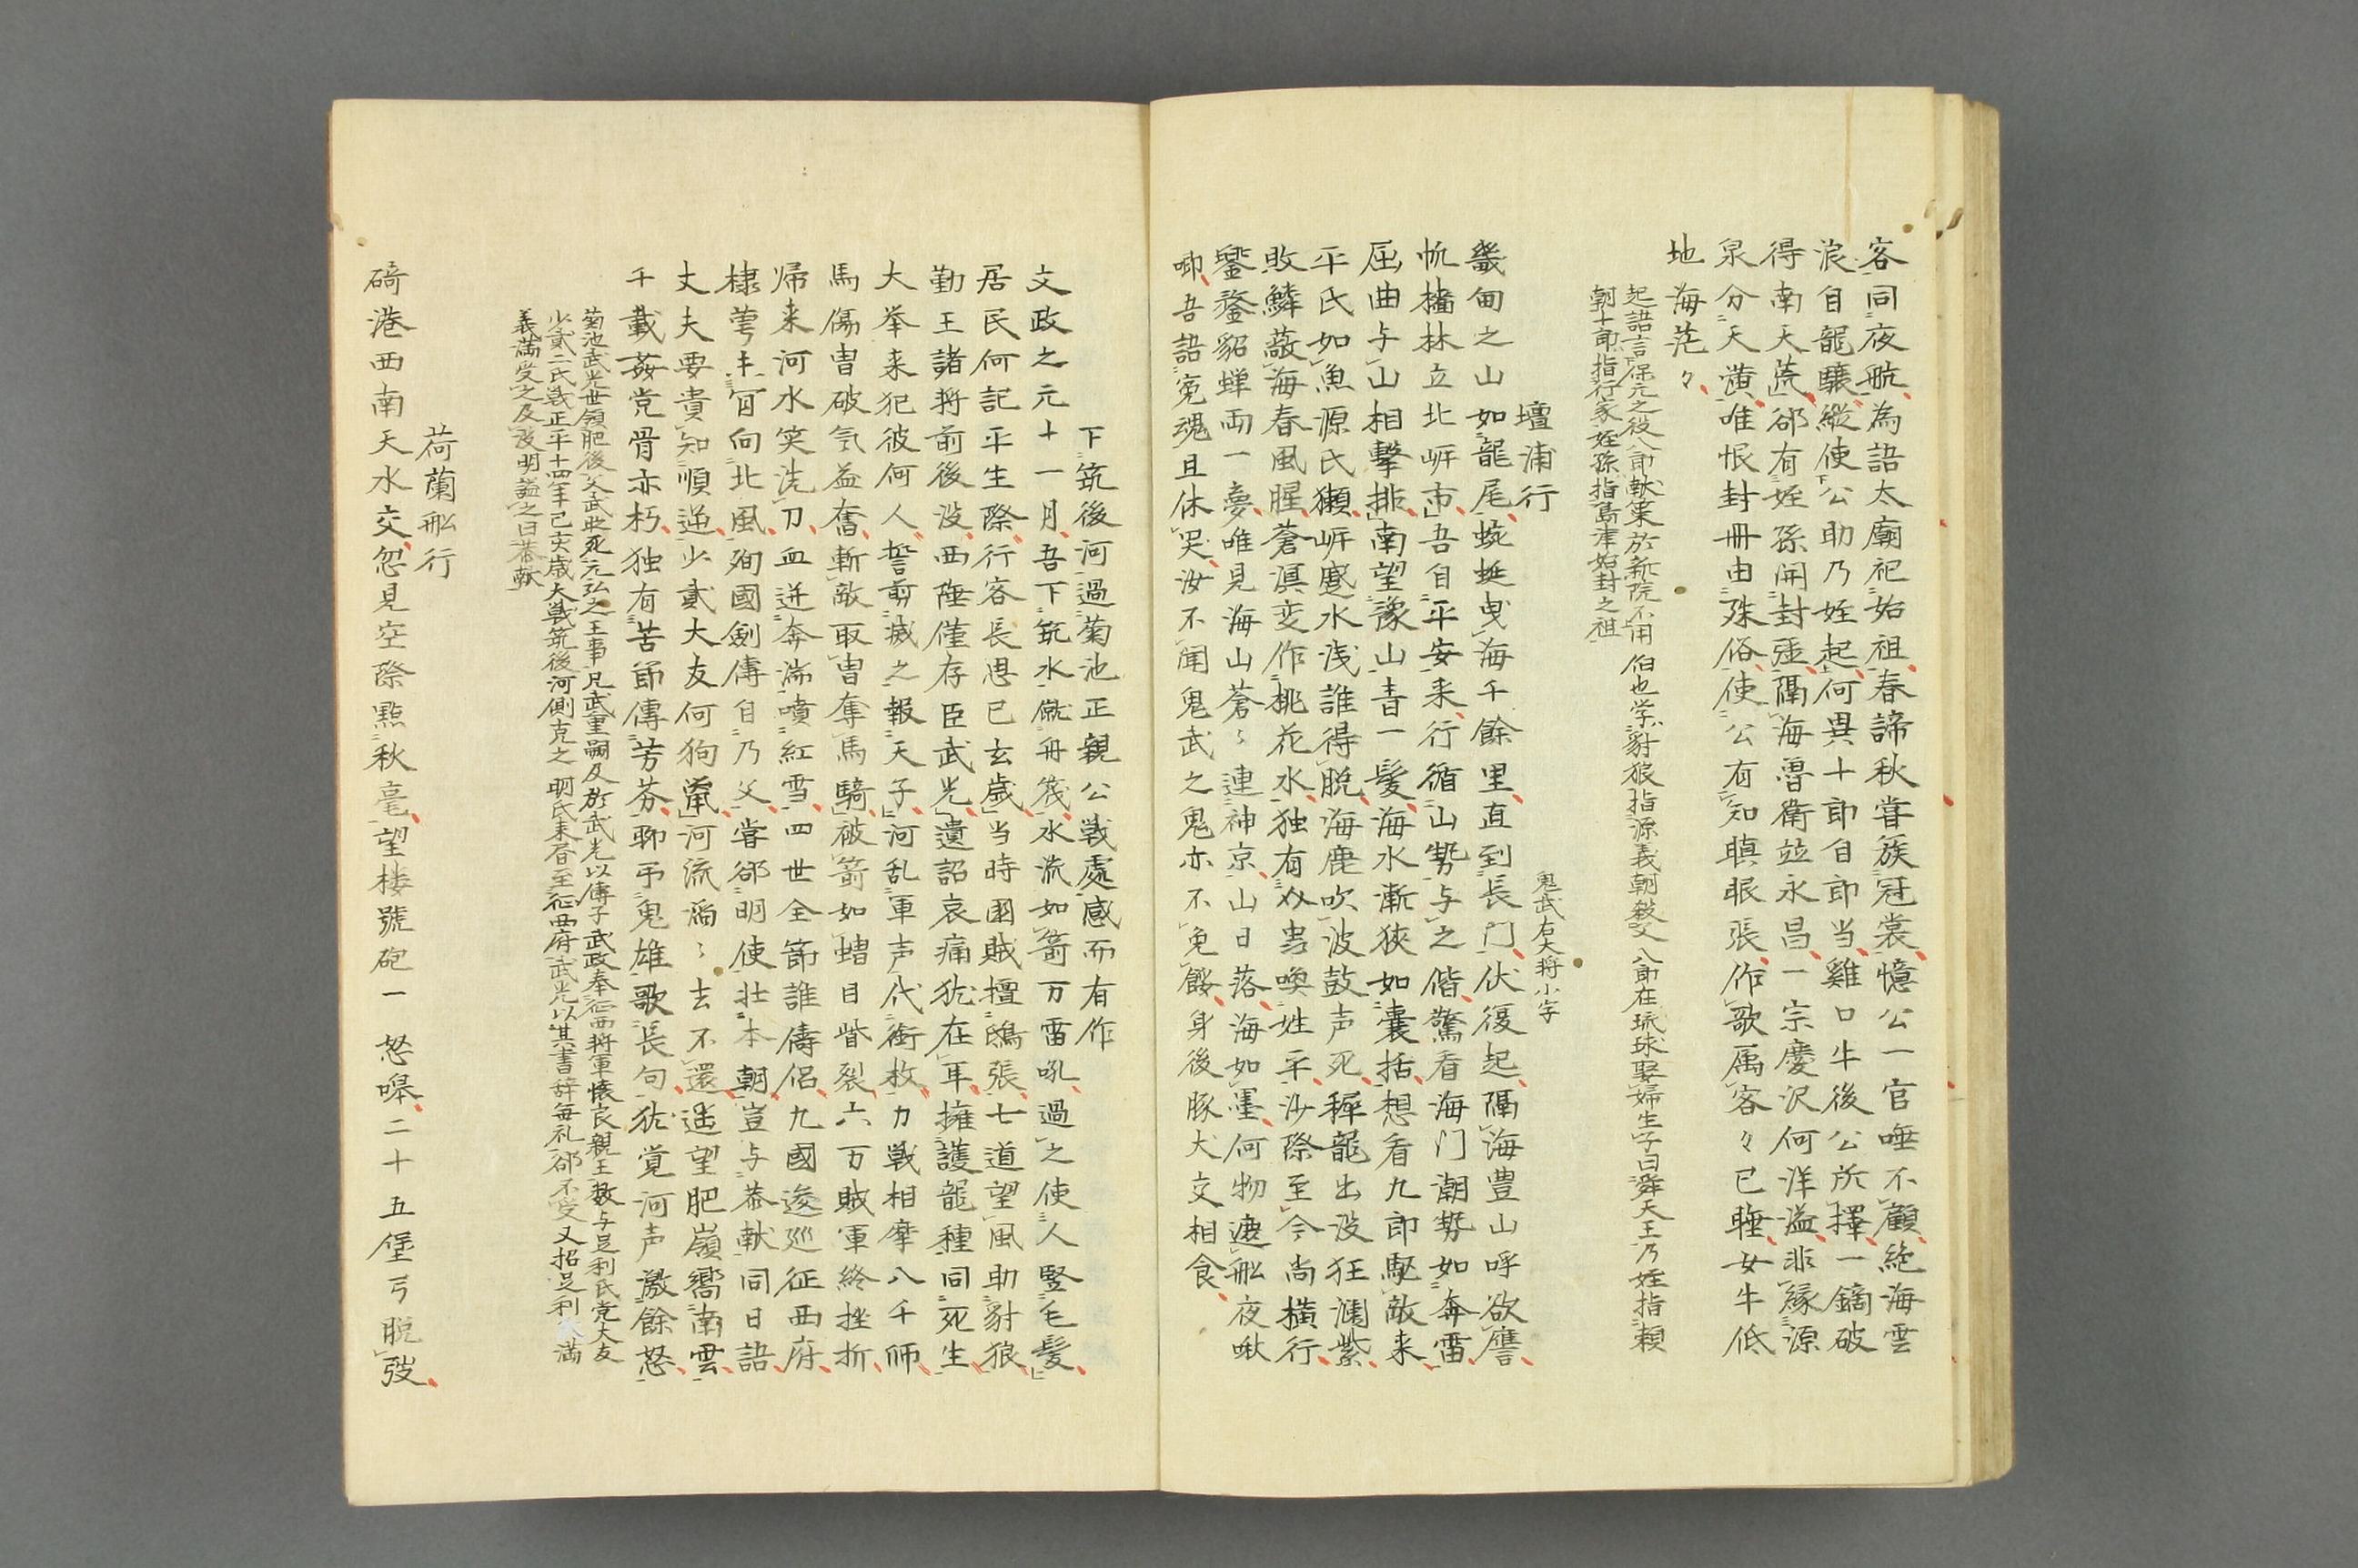 客同夜航為語太廟祀始祖春諦秋甞簇冠裳憶公一官唾不顧絶海雲
浪自龍驤縱使公助乃姪起何異十郎自郎当雞口牛後公所擇一鏑破
得南天荒郤有姪孫開封疆隔海魯衛竝永昌一宗慶沢何洋溢非縁源
泉分天潢唯恨封冊由殊俗使公有知瞋眼張作歌属客々已睡女牛低
地海茫々
起語言保元之役八郎献策於新院不用 伯也学豺狼指源義朝敍父八郎在琉球娶婦生子曰舜天王乃姪指頼
朝十郎指行家姪孫指島津始封之祖
壇浦行
鬼武右大将小字
畿甸之山如龍尾蜿蜒曳海千餘里直到長門伏復起隔海豊山呼欲譍
帆檣林立北岍市吾自平安来行循山勢与之偕驚看海门潮勢如奔雷
屈曲与山相撃排南望豫山青一髪海水漸狹如囊括想看九郎駆敵来
平氏如魚源氏獺岍蹙水浅誰得脱海鹿吹波鼓声死稺龍出没狂瀾紫
敗鱗蔽海春風腥蒼溟変作桃花水独有介虫喚姓平沙際至今尚横行
鑾鍪貂蝉両一夢唯見海山蒼々連神京山日落海如墨何物遶舩夜啾
喞吾語寃魂且休哭汝不聞鬼武之鬼亦不免餒身後豚犬交相食
下筑後河過菊池正親公戦處感而有作
文政之元十一月吾下筑水僦舟筏水流如箭万雷吼過之使人竪毛髪
居民何記平生際行客長思已玄歳当時国賊擅鴟張七道望風助豺狼
勤王諸将前後没西陲僅存臣武光遺詔哀痛犹在耳擁護龍種同死生
大挙来犯彼何人誓剪滅之報天子河乱軍声代銜枚刀戦相摩八千師
馬傷冑破気益奮斬敵取冑奪馬騎破箭如蝟目眥裂六万賊軍終挫折
帰来河水笑洗刀血迸奔湍噴紅雪四世全節誰儔侶九國逡巡征西府
棣萼未肯向北風殉國剣傳自乃父甞郤明使壮本朝豈与恭献同日語
丈夫要貴知順逆少貳大友何狗鼠河流滔々去不還遥望肥嶺嚮南雲
千載姦党骨亦朽独有苦節傳芳芬聊弔鬼雄歌長句犹覚河声激餘怒
菊池武光世領肥後父武時死元弘之王事兄武重嗣及於武光以傳子武政奉征西将軍懐良親王数与足利氏党大友
少貳二氏戦正平十四年己亥歳大戦筑後河側克之 明氏来脅至征西府武光以其書辞毎礼郤不受又招足利満
義満受之及没明謚之曰恭献
荷蘭舩行
碕港西南天水交忽見空際點秋毫望楼號砲一怒嘷二十五堡弓脱弢